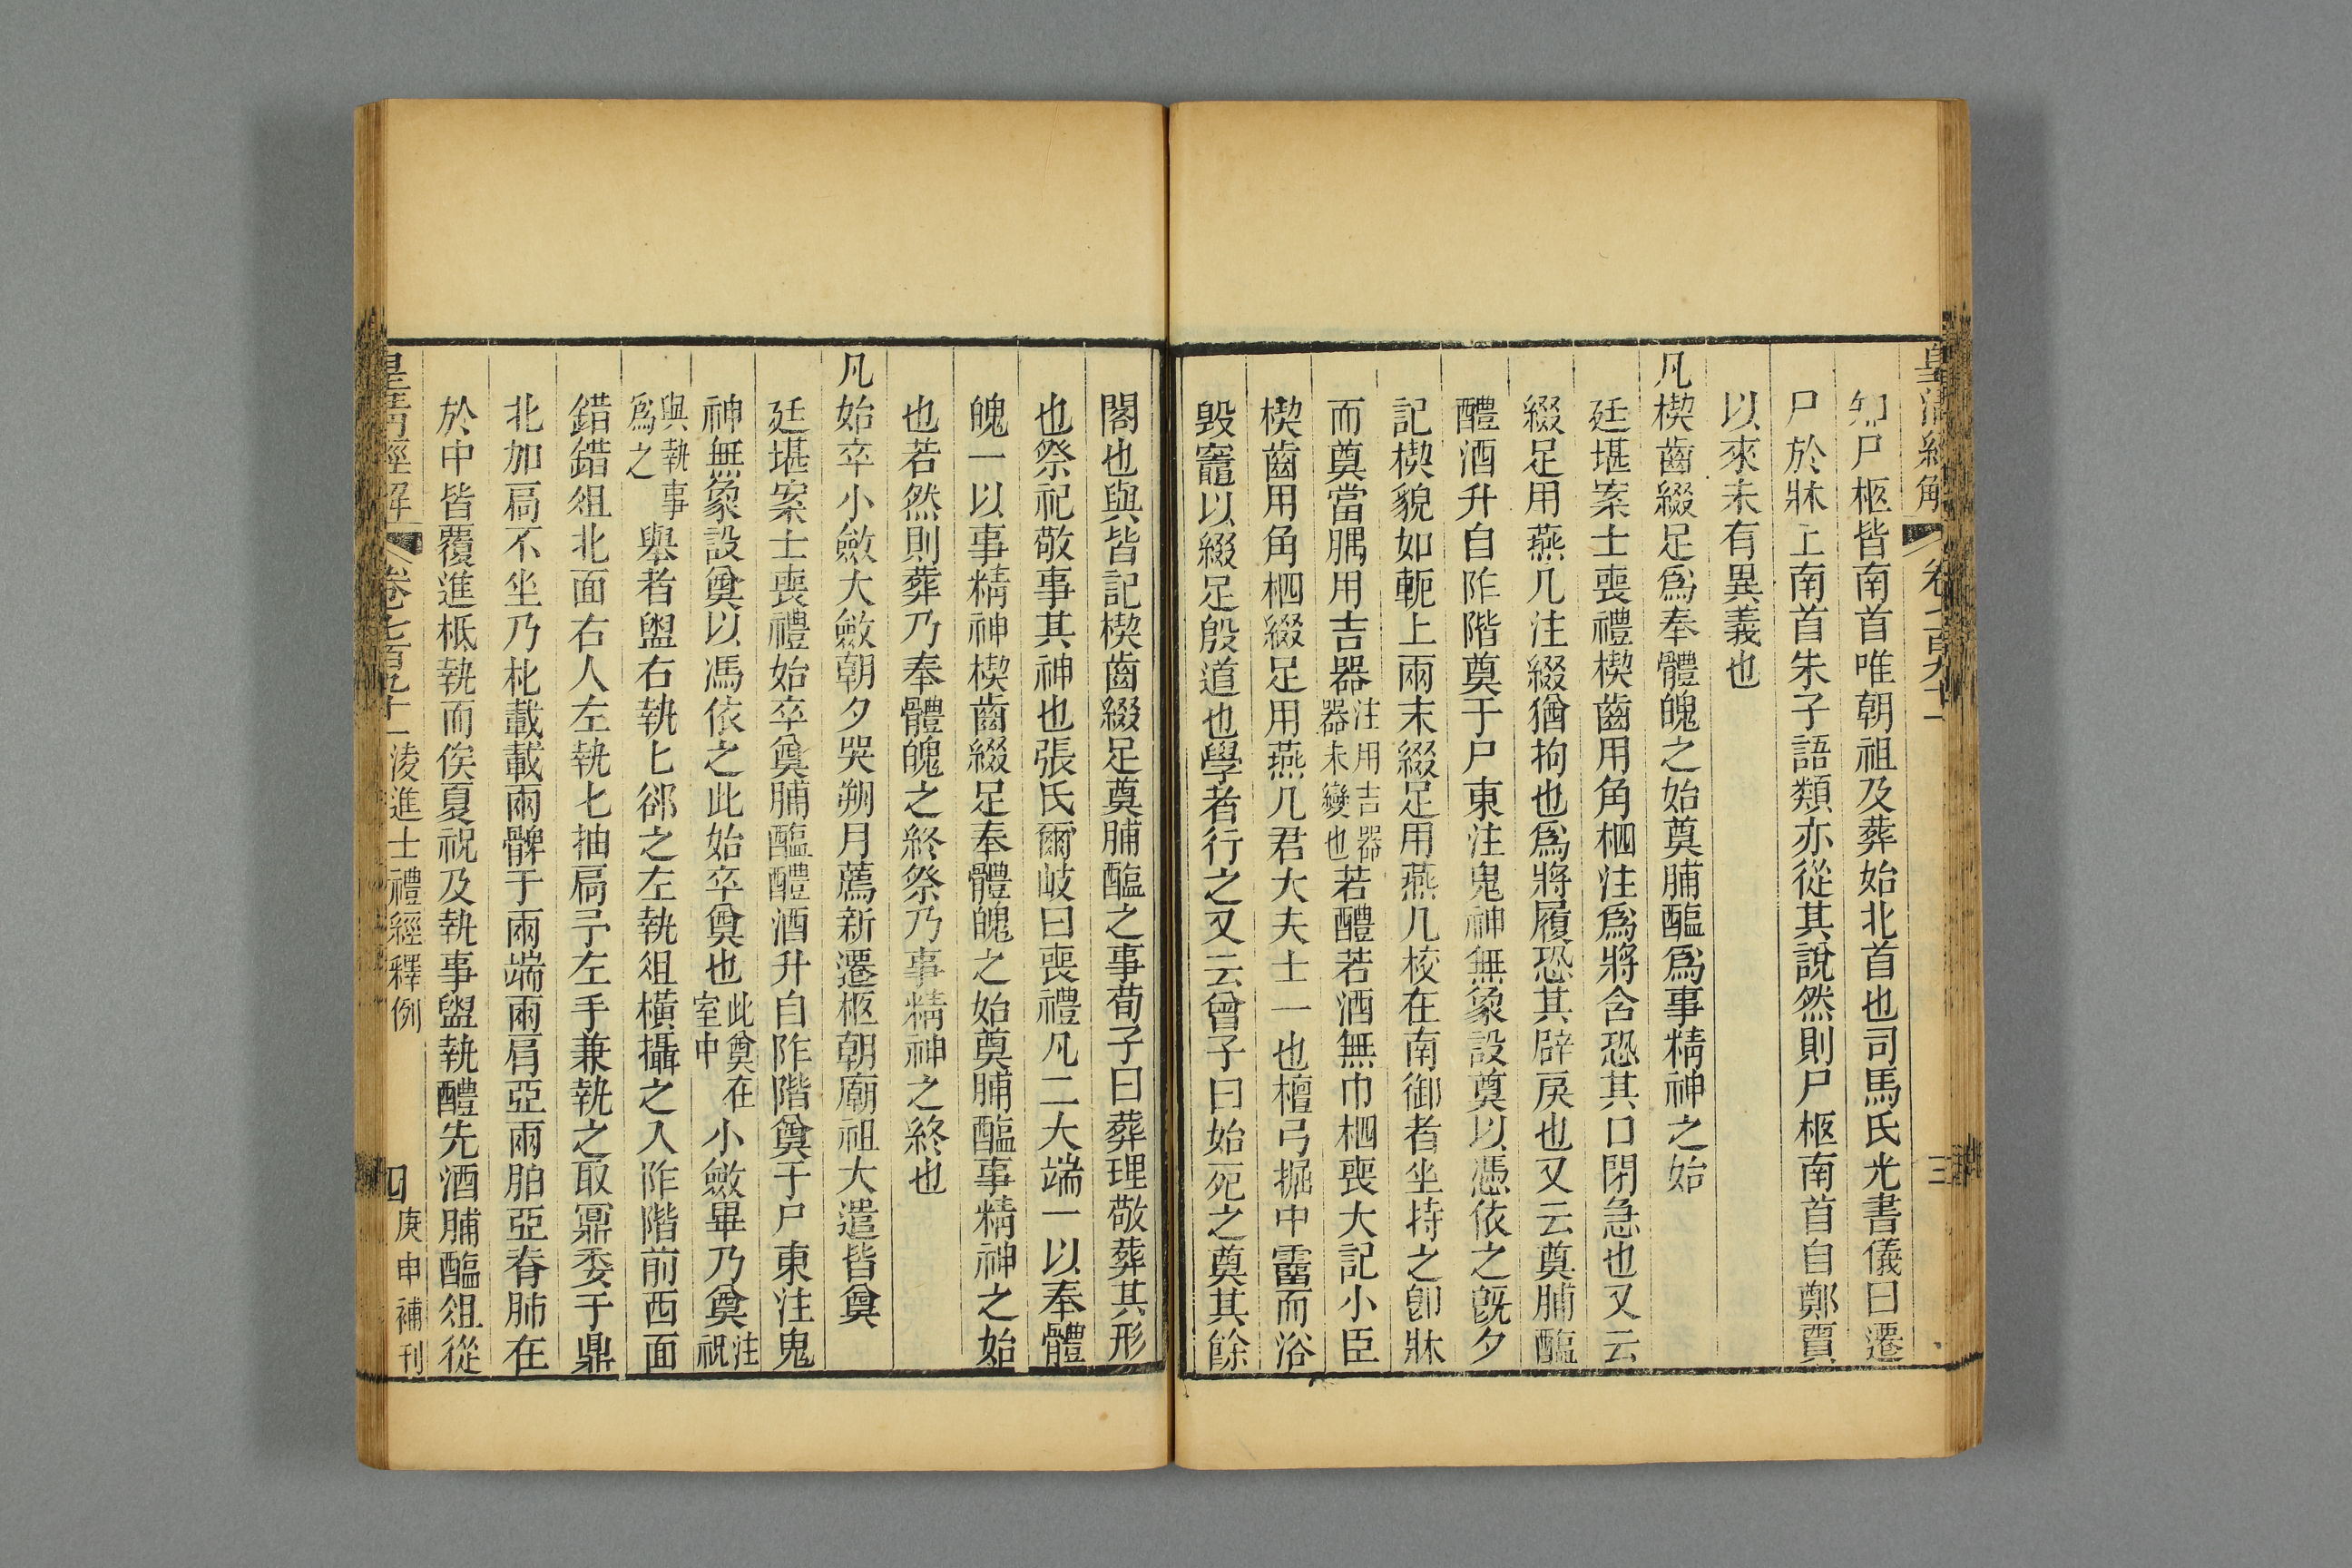 皇清經解
卷七百九十一
三
知尸柩皆南首唯朝祖及葬始北首也司馬氏光書儀曰遷
尸於牀上南首朱子語類亦從其說然則尸柩南首自鄭賈
以來未有異義也
凡楔齒綴足爲奉體魄之始奠脯醢爲事精神之始
廷堪案士喪禮楔齒用角柶注爲將含恐其口閉急也又云
綴足用燕几注綴猶拘也爲將履恐其辟戾也又云奠脯醢
醴酒升自阼階奠于尸東注鬼神無象設奠以憑依之旣夕
記楔貌如軛上兩末綴足用燕几校在南御者坐持之卽牀
而奠當腢用吉器注用吉器器未變也若醴若酒無巾柶喪大記小臣
楔齒用角柶綴足用燕几君大夫士一也檀弓掘中霤而浴
毀竈以綴足殷道也學者行之又云曾子曰始死之奠其餘
閣也與皆記楔齒綴足奠脯醢之事荀子曰葬理敬葬其形
也祭祀敬事其神也張氏爾岐曰喪禮凡二大端一以奉體
魄一以事精神楔齒綴足奉體魄之始奠脯醢事精神之始
也若然則葬乃奉體魄之終祭乃事精神之終也
凡始卒小斂大斂朝夕哭朔月薦新遷柩朝廟祖大遣皆奠
廷堪案士喪禮始卒奠脯醢醴酒升自阼階奠于尸東注鬼
神無象設奠以馮依之此始卒奠也此奠在室中小斂畢乃奠注祝
與執事爲之舉者盥右執匕郤之左執俎橫攝之入阼階前西面
錯錯俎北面右人左執匕抽扃予左手兼執之取鼏委于鼎
北加扃不坐乃朼載載兩髀于兩端兩肩亞兩胉亞脊肺在
於中皆覆進柢執而俟夏祝及執事盥執醴先酒脯醢俎從
皇清經解
卷七百九十一
淩進士禮經釋例
四
庚申補刊